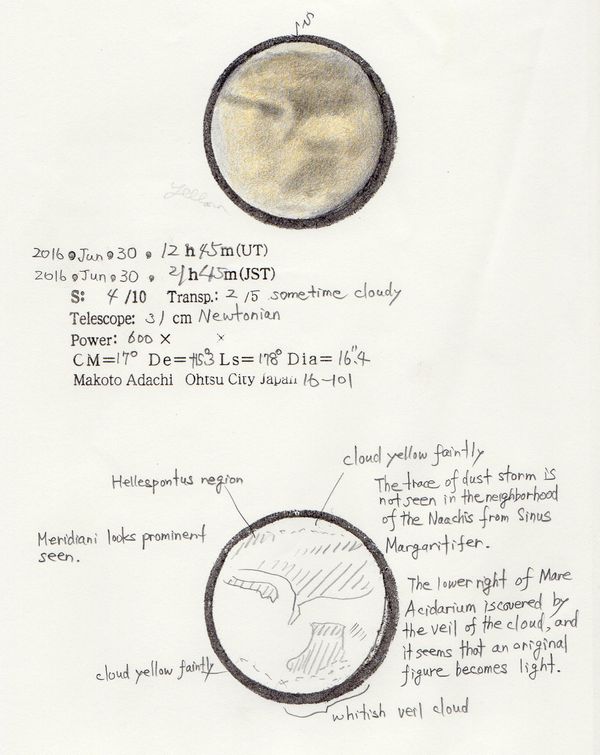 S
Yellow
2016.Jun.30. 12h45m(UT)
2016.Jun.30. 21h45m(JST)
S: 4/10 Transp.: 2/5 sometime cloudy
Telescope: 31 cm Newtonian
Power: 600× ×
CM=17° De=+15.3° Ls=178° Dia=16".4
Makoto Adachi Ohtsu City Japan 16-101
cloud yellow faintly
Hellespontus region
The trace of dust storm is
not seen in the neighborhood
of the Naachis from Sinus
Margaritifer.
Meridiani looks prominent
seen.
The lower right of Mare
Acidarium is covered by
the veil of the cloud, and
it seems that an original
figure becomes light.
cloud yellow faintly
whitish veil cloud